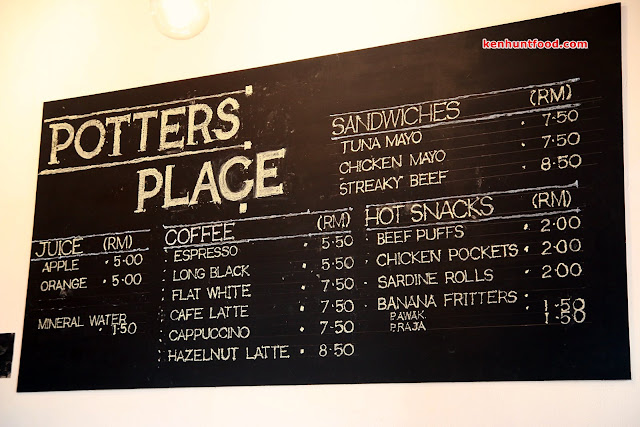 kenhuntfood.com
POTTERS
PLACE
JUICE (RM)
APPLE 5.00
ORANGE 5.00
MINERAL WATER
1.50
COFFEE (RM)
ESPRESSO 5.50
LONG BLACK 5.50
FLAT WHITE 7.50
CAFE LATTE 7.50
CAPPUCCINO 7.50
HAZELNUT LATTE 8.50
SANDWICHES (RM)
TUNA MAYO 7.50
CHICKEN MAYO 7.50
STREAKY BEEF 8.50
HOT SNACKS (RM)
BEEF PUFFS 2.00
CHICKEN POCKETS 2.00
SARDINE ROLLS 2.00
BANANA FRITTERS
PAWAK 1.50
P.RAJA 1.50